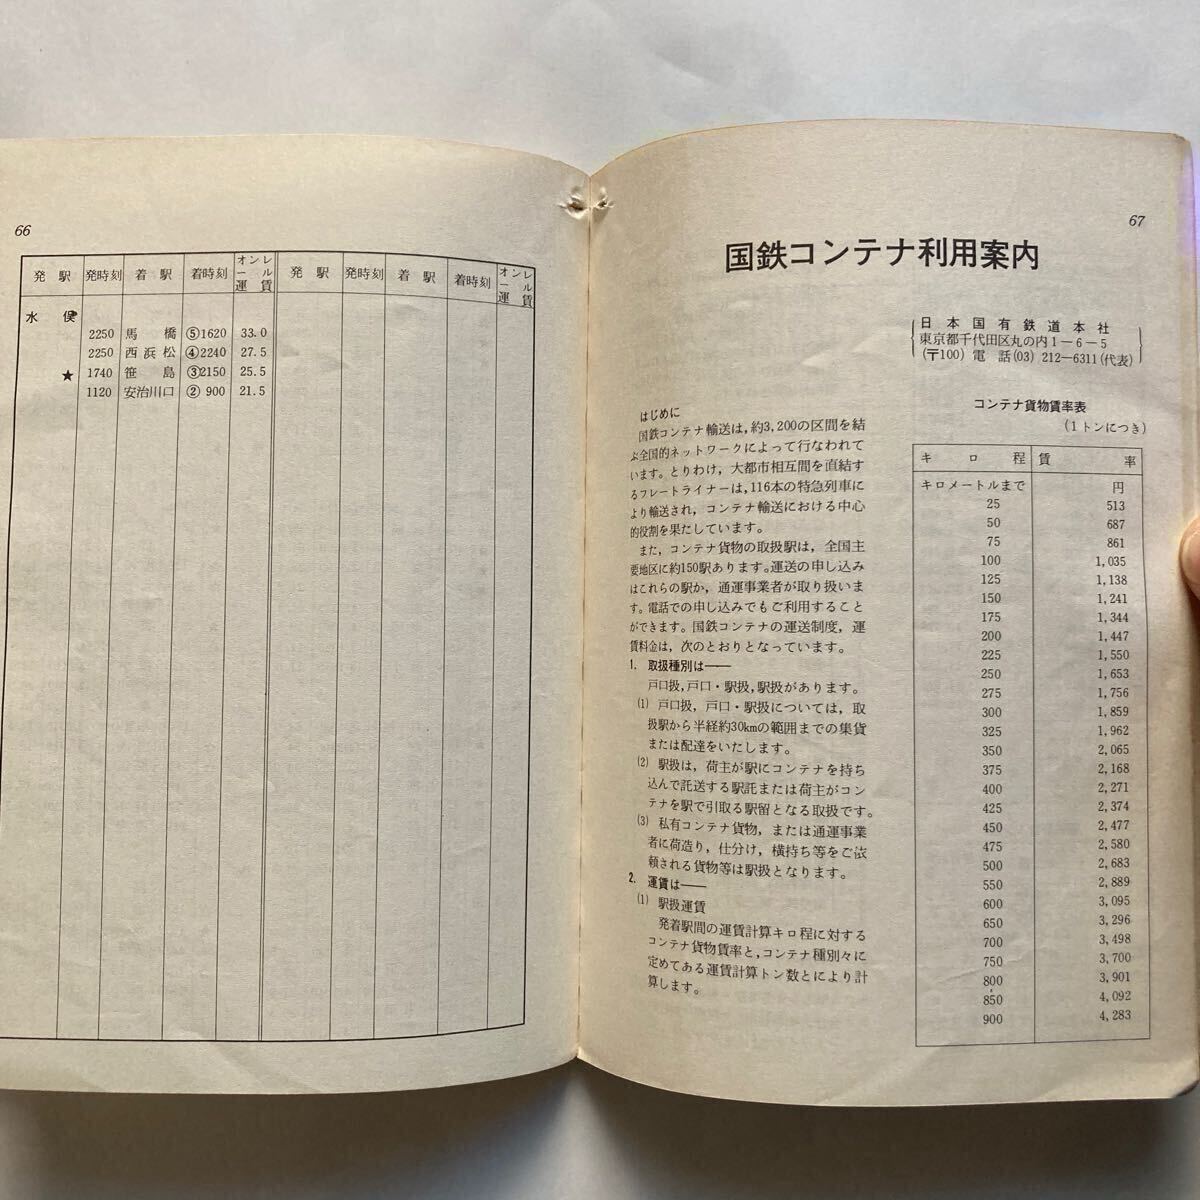 66
発駅 発時刻 着駅 着時刻 オンレール運賃 発駅 発時刻 着駅 着時刻 オンレール運賃
水俣
2250 馬橋 ⑤1620 33.0
2250 西浜松 ④2240 27.5
★ 1740 笹島 ③2150 25.5
1120 安治川口 ② 900 21.5
67
国鉄コンテナ利用案内
日本国有鉄道本社
東京都千代田区丸の内1－6－5
(〒100) 電話(03) 212－6311(代表)
はじめに
国鉄コンテナ輸送は，約3,200の区間を結
ぶ全国的ネットワークによって行なわれて
います。とりわけ，大都市相互間を直結す
るフレートライナーは，116本の特急列車に
より輸送され，コンテナ輸送における中心
的役割を果たしています。
また，コンテナ貨物の取扱駅は，全国主
要地区に約150駅あります。運送の申し込み
はこれらの駅か，通運事業者が取り扱いま
す。電話での申し込みでもご利用すること
ができます。国鉄コンテナの運送制度，運
賃料金は，次のとおりとなっています。
1. 取扱種別は——
戸口扱，戸口・駅扱，駅扱があります。
(1) 戸口扱，戸口・駅扱については，取
扱駅から半経約30kmの範囲までの集貨
または配達をいたします。
(2) 駅扱は，荷主が駅にコンテナを持ち
込んで託送する駅託または荷主がコン
テナを駅で引取る駅留となる取扱です。
(3) 私有コンテナ貨物，または通運事業
者に荷造り，仕分け，横持ち等をご依
頼される貨物等は駅扱となります。
2. 運賃は——
(1) 駅扱運賃
発着駅間の運賃計算キロ程に対する
コンテナ貨物賃率と，コンテナ種別々に
定めてある運賃計算トン数とにより計
算します。
コンテナ貨物賃率表
(1トンにつき)
キロ程 賃率
キロメートルまで 円
25 513
50 687
75 861
100 1,035
125 1,138
150 1,241
175 1,344
200 1,447
225 1,550
250 1,653
275 1,756
300 1,859
325 1,962
350 2,065
375 2,168
400 2,271
425 2,374
450 2,477
475 2,580
500 2,683
550 2,889
600 3,095
650 3,296
700 3,498
750 3,700
800 3,901
850 4,092
900 4,283